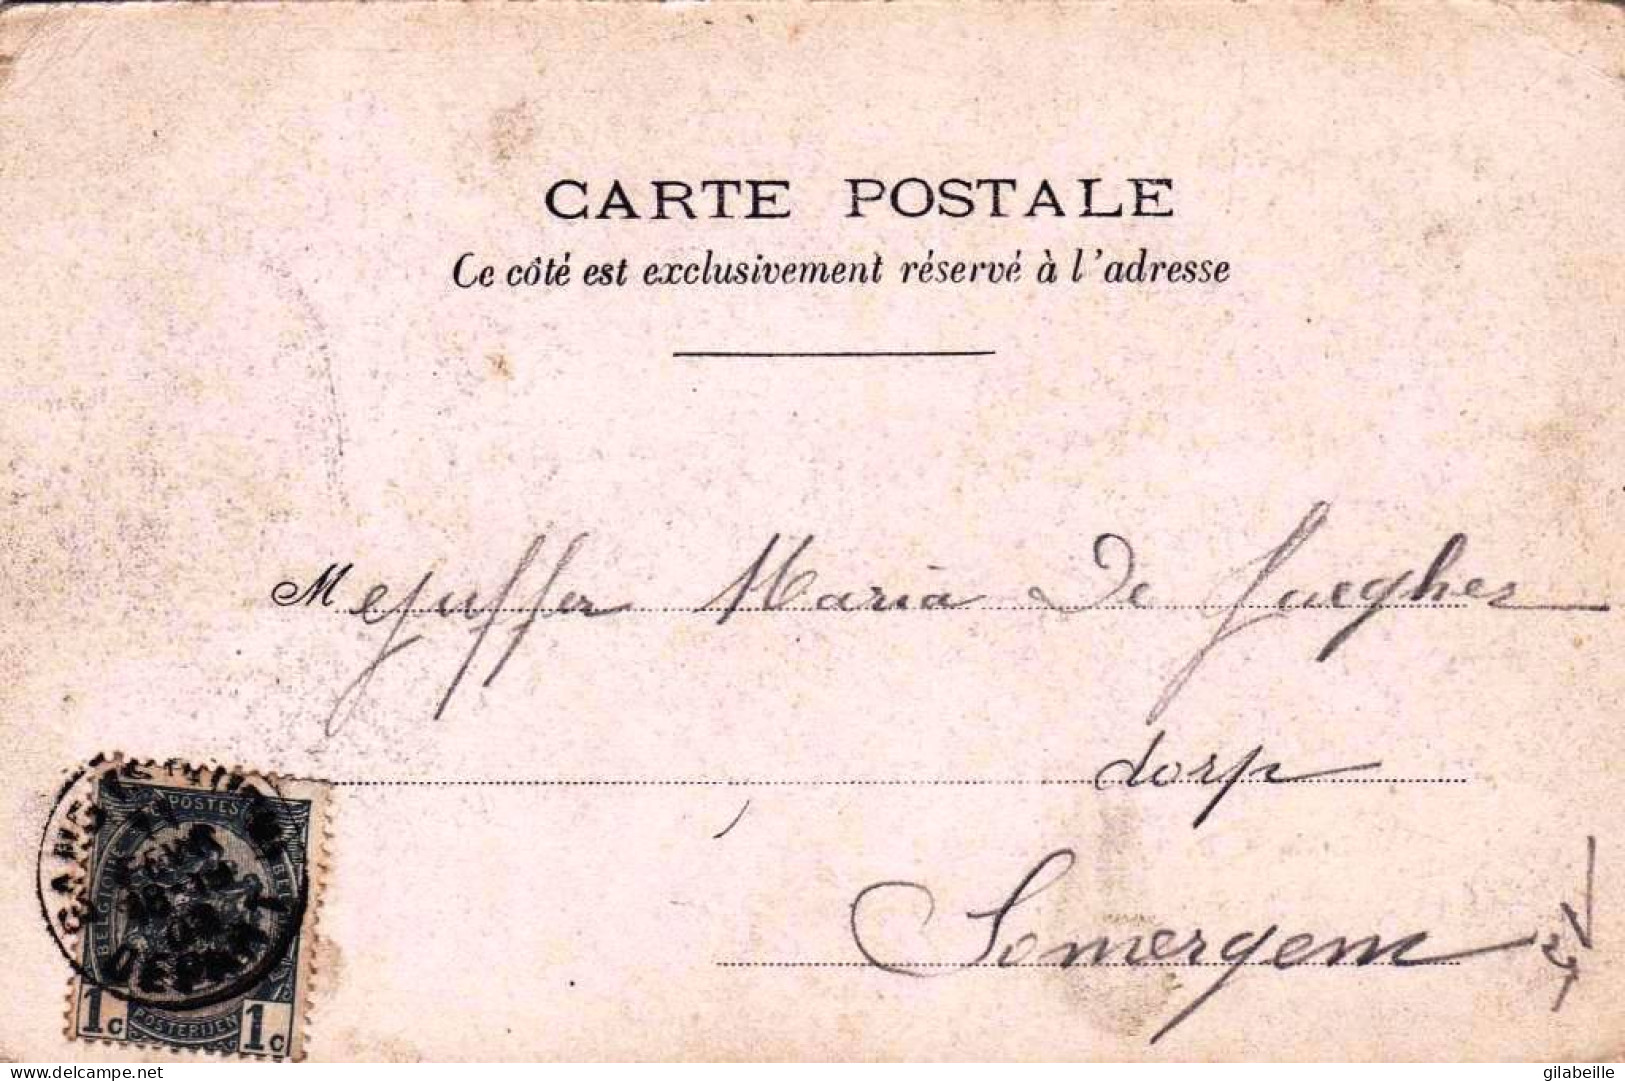 CARTE POSTALE
Ce côté est exclusivement réservé à l'adresse
Mejuffer Maria De Jaegher
dorp
Somergem
POSTES
BELGIQUE
BELGIE
GAND
DEPART
1c POSTERIJEN 1c
delcampe.net
gilabeille